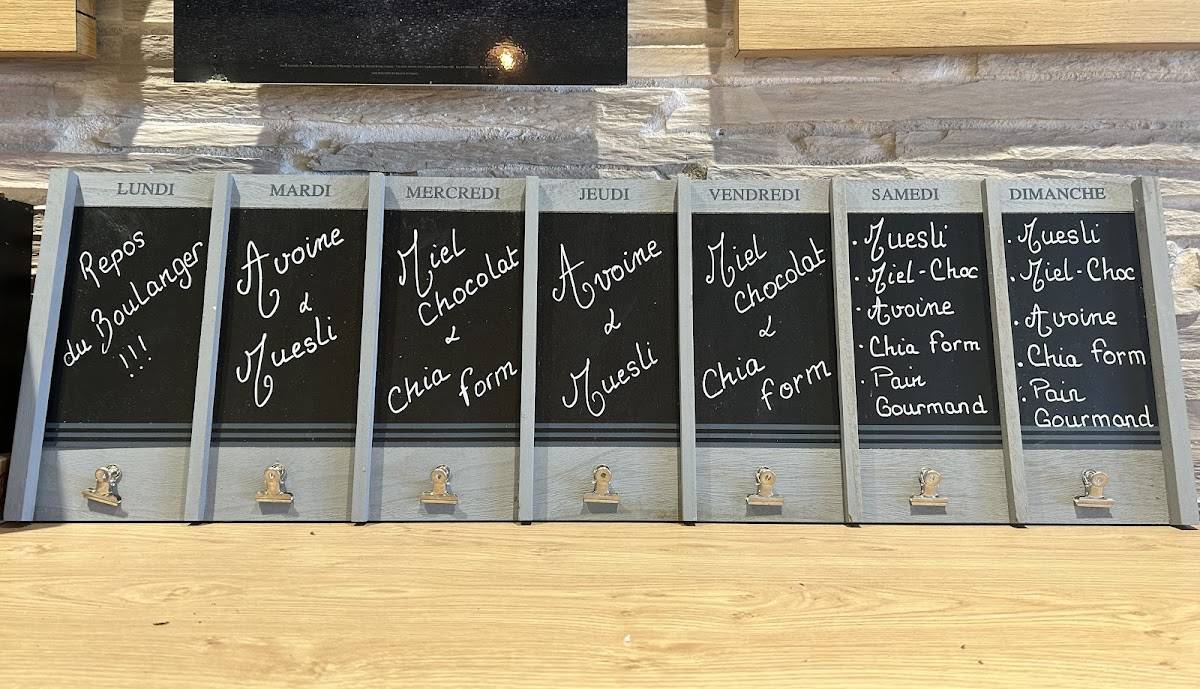 LUNDI
Repos
du Boulanger
!!!
MARDI
Avoine
&
Muesli
MERCREDI
Miel
Chocolat
&
Chia form
JEUDI
Avoine
&
Muesli
VENDREDI
Miel
Chocolat
&
Chia form
SAMEDI
. Muesli
. Miel-Choc
. Avoine
. Chia form
. Pain
Gourmand
DIMANCHE
. Muesli
. Miel-Choc
. Avoine
. Chia form
. Pain
Gourmand